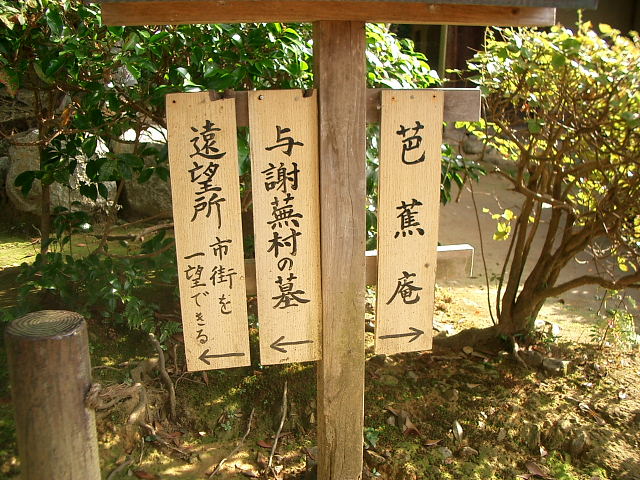 芭蕉庵
→
与謝蕪村の墓
←
遠望所 市街を
一望できる
←